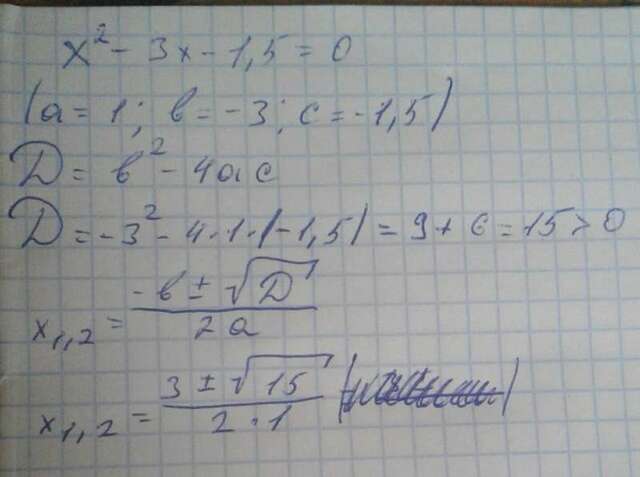 x² - 3x - 1,5 = 0
(a = 1; в = -3; c = -1,5)
D = в² - 4ac
D = -3² - 4·1·(-1,5) = 9 + 6 = 15 > 0
x₁,₂ = (-в ± √D) / 2a
x₁,₂ = (3 ± √15) / 2·1